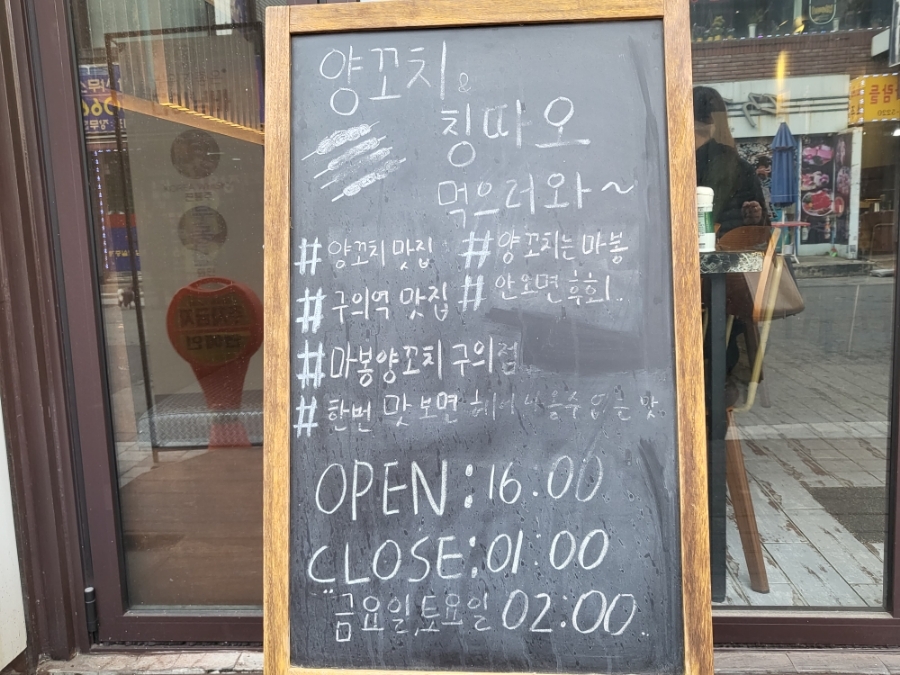 양꼬치 &
칭따오
먹으러와~
# 양꼬치 맛집 # 양꼬치는 마봉
# 구의역 맛집 # 안오면 후회..
# 마봉양꼬치 구의점
# 한번 맛보면 헤어 나올수 없는 맛
OPEN : 16:00
CLOSE : 01:00
금요일, 토요일 02:00